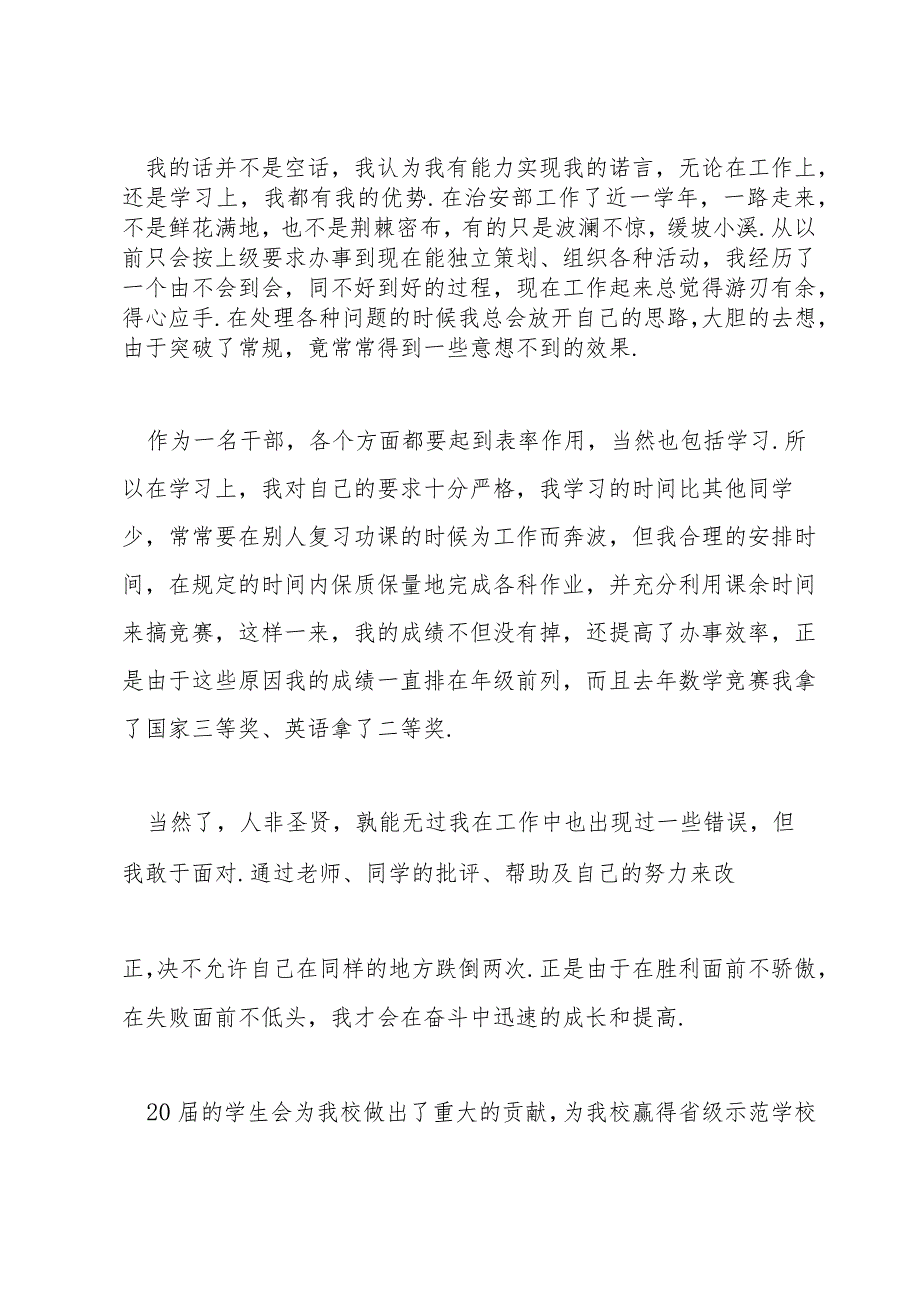 我的话并不是空话，我认为我有能力实现我的诺言，无论在工作上，
还是学习上，我都有我的优势.在治安部工作了近一学年，一路走来，
不是鲜花满地，也不是荆棘密布，有的只是波澜不惊，缓坡小溪.从以
前只会按上级要求办事到现在能独立策划、组织各种活动，我经历了
一个由不会到会，同不好到好的过程，现在工作起来总觉得游刃有余，
得心应手.在处理各种问题的时候我总会放开自己的思路，大胆的去想，
由于突破了常规，竟常常得到一些意想不到的效果.
作为一名干部，各个方面都要起到表率作用，当然也包括学习.所
以在学习上，我对自己的要求十分严格，我学习的时间比其他同学
少，常常要在别人复习功课的时候为工作而奔波，但我合理的安排时
间，在规定的时间内保质保量地完成各科作业，并充分利用课余时间
来搞竞赛，这样一来，我的成绩不但没有掉，还提高了办事效率，正
是由于这些原因我的成绩一直排在年级前列，而且去年数学竞赛我拿
了国家三等奖、英语拿了二等奖.
当然了，人非圣贤，孰能无过我在工作中也出现过一些错误，但
我敢于面对.通过老师、同学的批评、帮助及自己的努力来改
正，决不允许自己在同样的地方跌倒两次.正是由于在胜利面前不骄傲，
在失败面前不低头，我才会在奋斗中迅速的成长和提高.
20届的学生会为我校做出了重大的贡献，为我校赢得省级示范学校